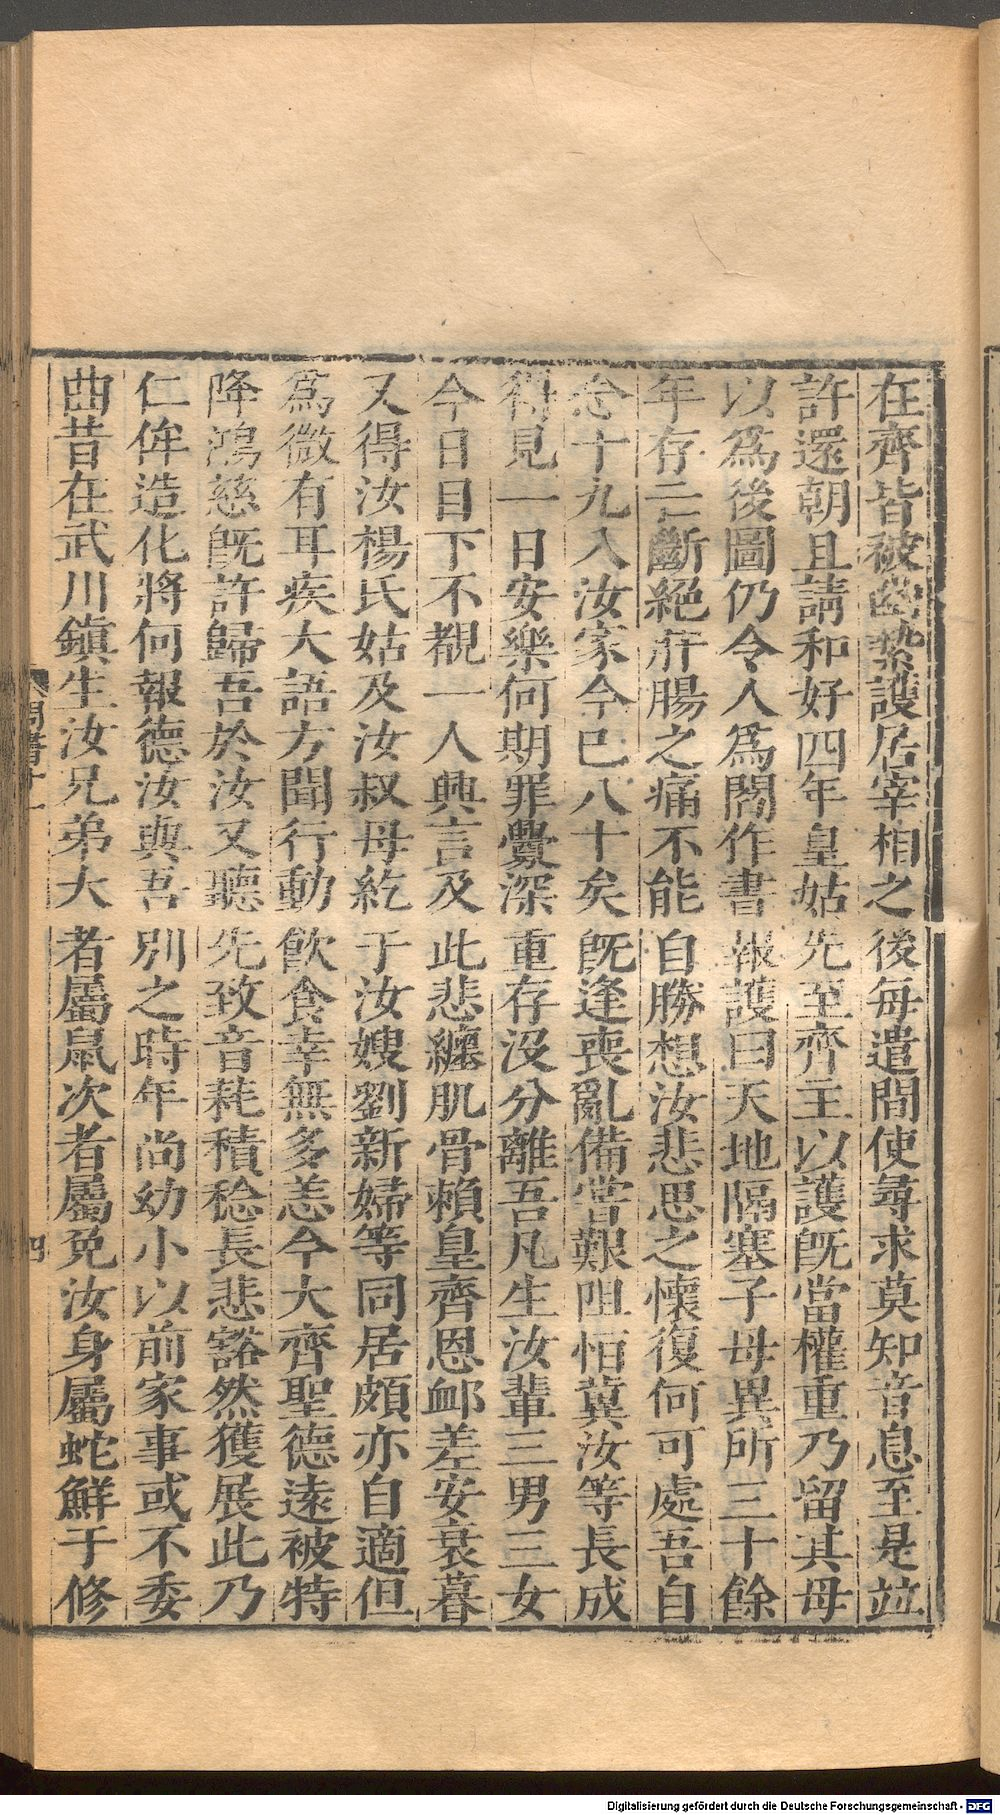 在齊皆被幽縶護居宰相之後每遣間使尋求莫知音息至是竝
許還朝且請和好四年皇姑先至齊主以護旣當權重乃留其母
以爲後圖仍令人爲閻作書報護曰天地隔塞子母異所三十餘
年存亡斷絕肝腸之痛不能自勝想汝悲思之懷復何可處吾自
念十九入汝家今已八十矣旣逢喪亂備嘗艱阻恒冀汝等長成
得見一日安樂何期罪釁深重存沒分離吾凡生汝輩三男三女
今日目下不覩一人興言及此悲纏肌骨賴皇齊恩䘏差安衰暮
又得汝楊氏姑及汝叔母紇于汝嫂劉新婦等同居頗亦自適但
爲微有耳疾大語方聞行動飲食幸無多恙今大齊聖德遠被特
降鴻慈旣許歸吾於汝又聽先致音耗積稔長悲豁然獲展此乃
仁侔造化將何報德汝與吾別之時年尚幼小以前家事或不委
曲昔在武川鎭生汝兄弟大者屬鼠次者屬兔汝身屬蛇鮮于修
周書十一
四
Digitalisierung gefördert durch die Deutsche Forschungsgemeinschaft - DFG